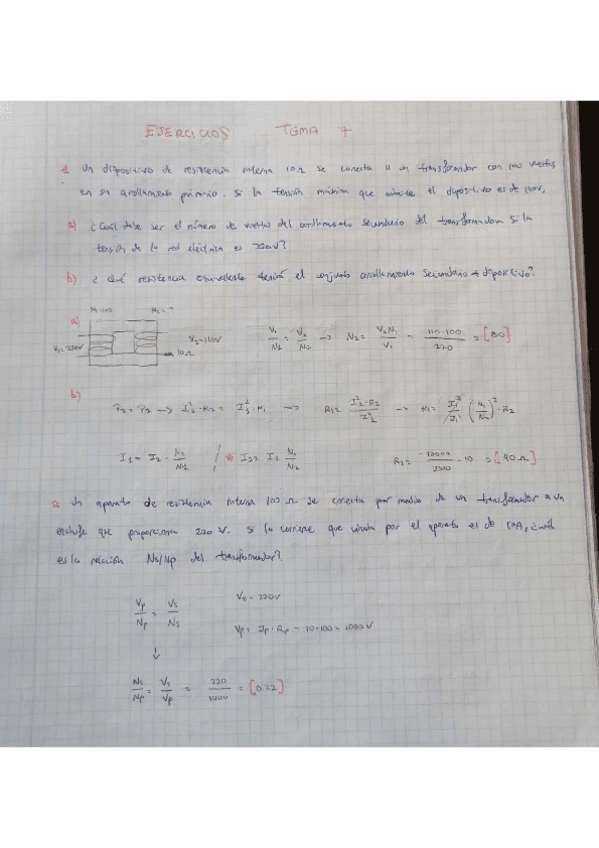 EJERCICIOS TEMA 7
1. Un dispositivo de resistencia interna 10Ω se conecta a un transformador con 100 vueltas
en su arrollamiento primario. Si la tensión máxima que admite el dispositivo es de 110V,
a) ¿Cuál debe ser el número de vueltas del arrollamiento secundario del transformador si la
tensión de la red eléctrica es 220V?
b) ¿Qué resistencia equivalente tendrá el conjunto arrollamiento secundario + dispositivo?
a) N1=100 N2=?
V1=220V V2=110V 10Ω
V1/N1 = V2/N2 → N2= V2·N1/V1 = 110·100/220 = [50]
b) P2=P2 → I2²·R2 = I1²·R1 → R1= I2²·R2/I1² → R1= I1²/I1² (N1/N2)²·R2
I1= I2· N2/N1 / * I2= I1· N1/N2 R1= 10000/2500 ·10 = [40Ω]
2. Un aparato de resistencia interna 100 Ω se conecta por medio de un transformador a un
enchufe que proporciona 220 V. Si la corriente que circula por el aparato es de 10A, ¿cuál
es la relación Ns/Np del transformador?
Vp/Np = Vs/Ns Vs=220V
Vp= Ip·Rp = 10·100= 1000V
↓
Ns/Np = Vs/Vp = 220/1000 = [0.22]